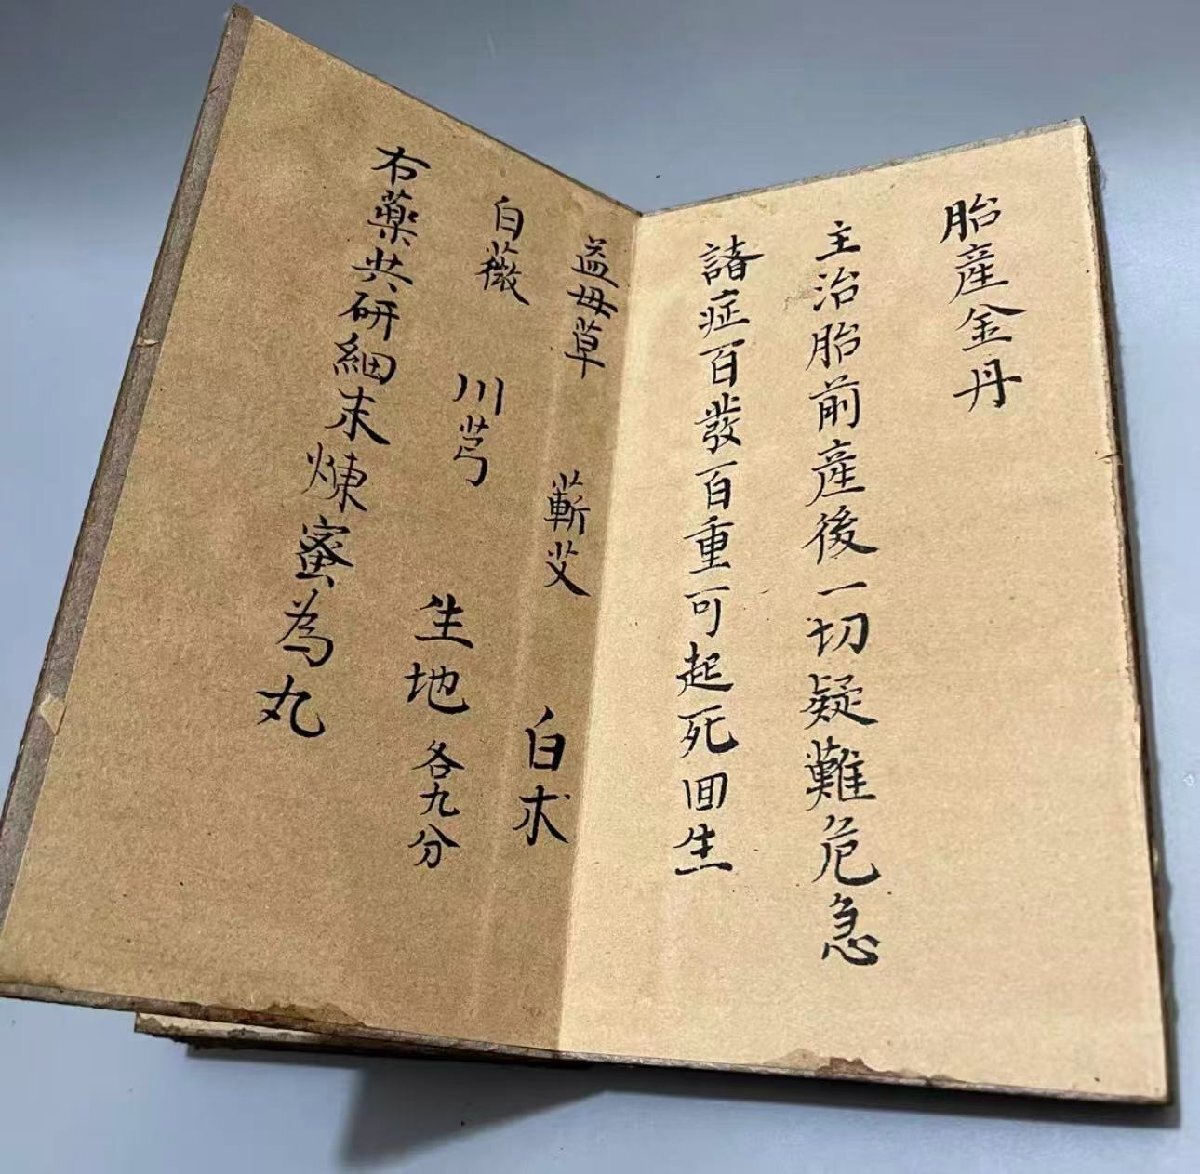 胎產金丹
主治胎前產後一切疑難危急
諸症百發百重可起死回生
益母草 蘄艾 白朮
白薇 川芎 生地 各九分
右藥共研細末煉蜜為丸